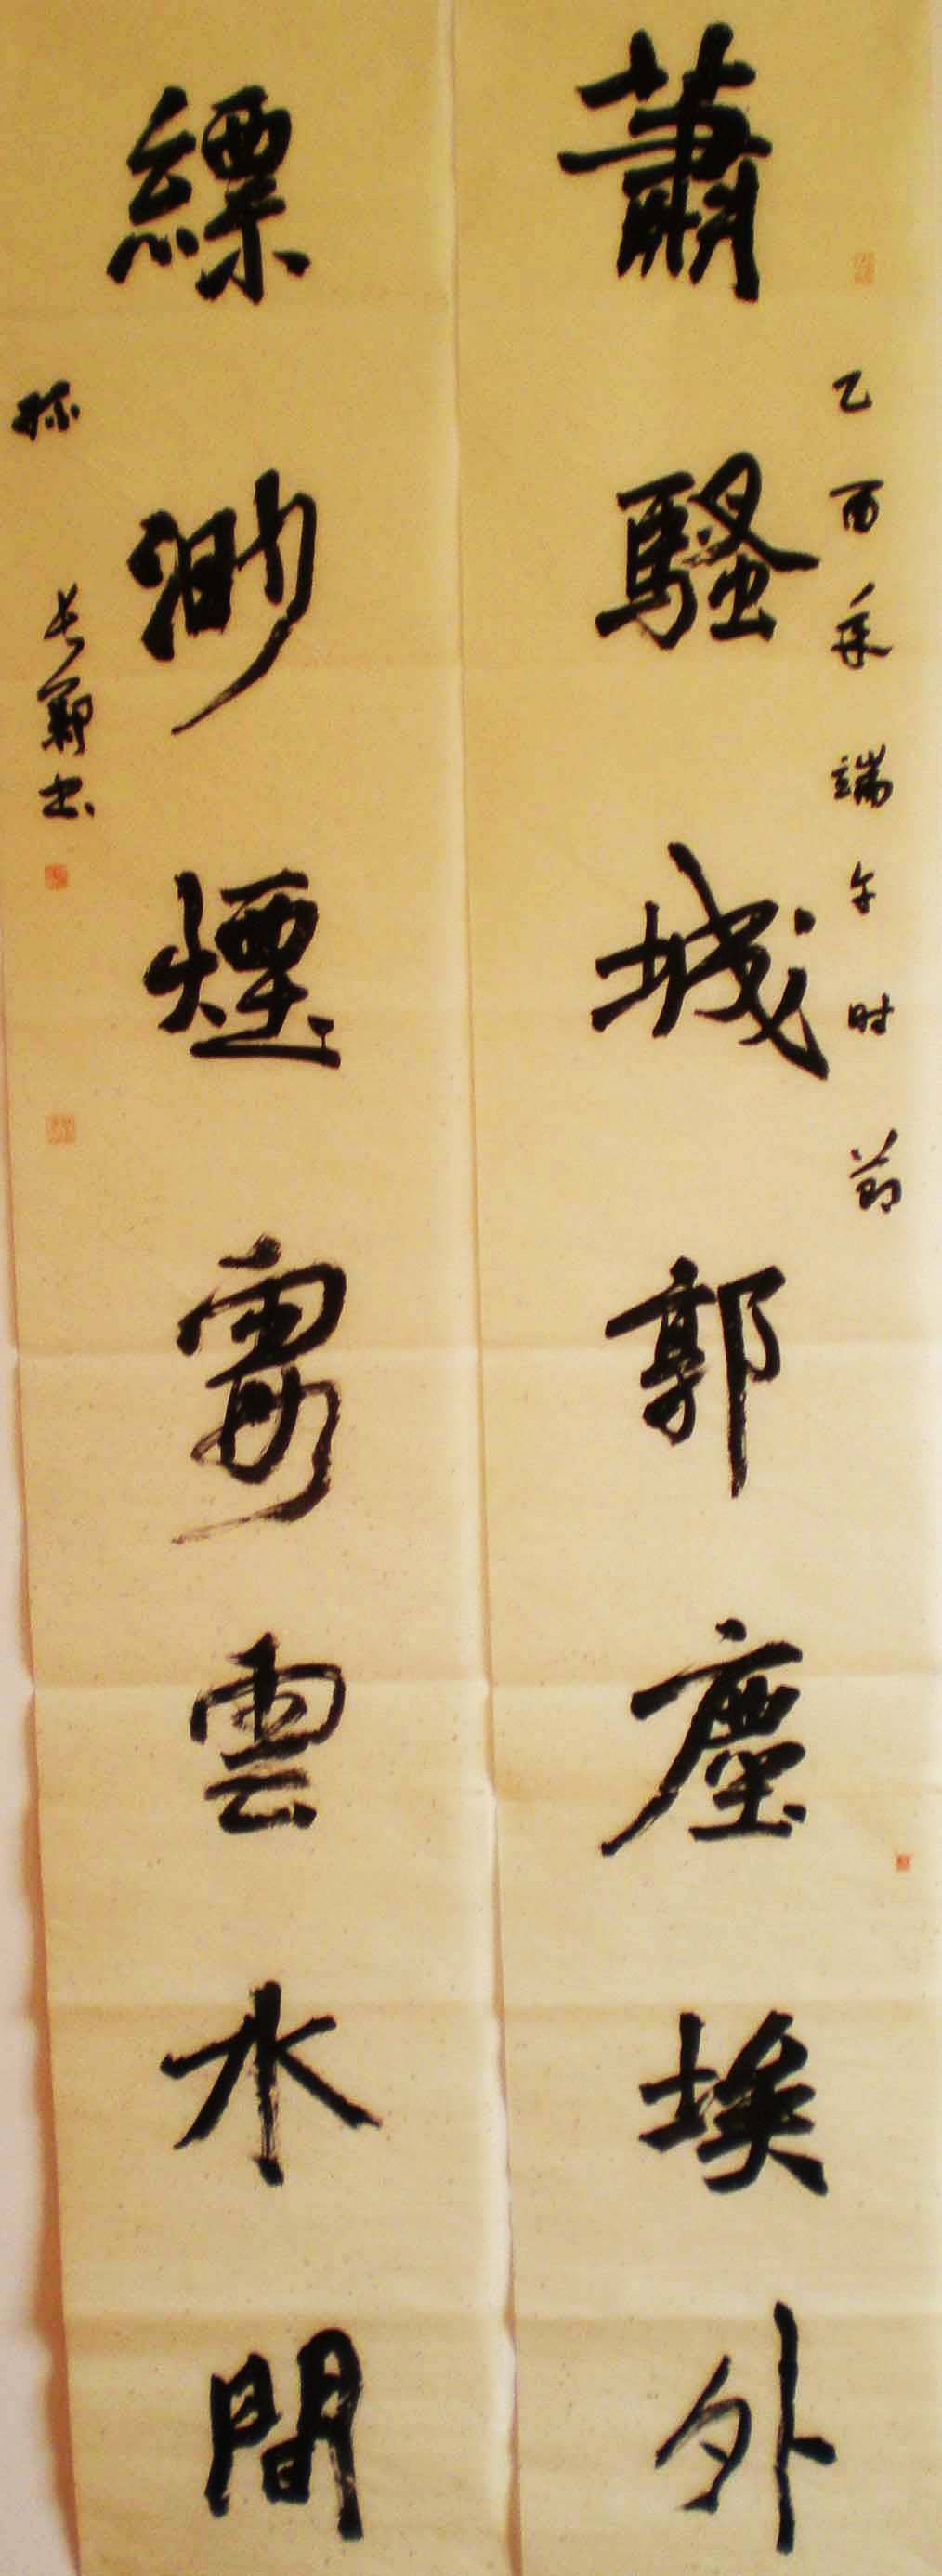 乙酉年端午时节
蕭騷城郭塵埃外
縹渺煙霞雲水間
书